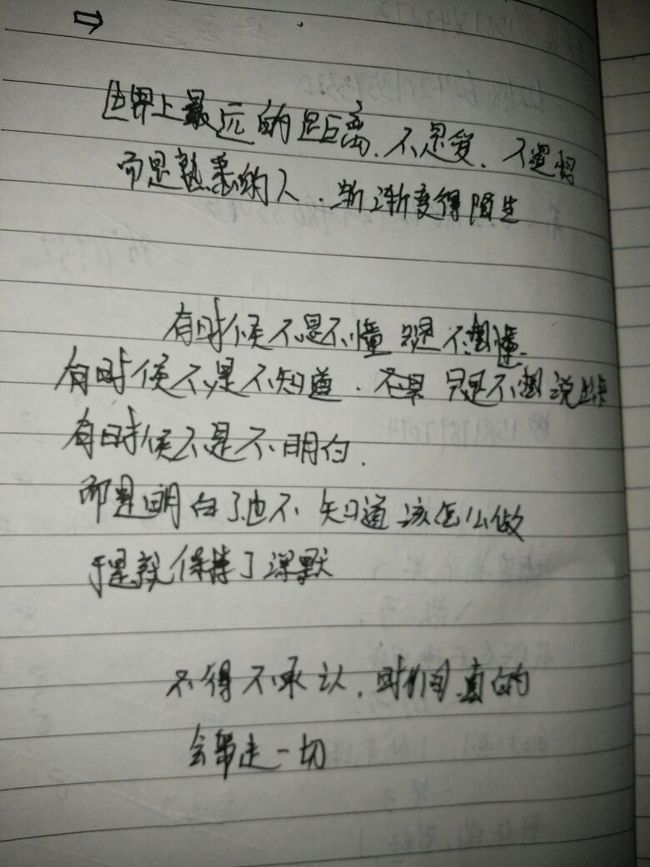 世界上最远的距离、不是爱、不是恨
而是熟悉的人、渐渐变得陌生
有时候不是不懂 只是不想懂.
有时候不是不知道. 只是不想说出来
有时候不是不明白.
而是明白了也不知道该怎么做
于是就保持了沉默
不得不承认, 时间真的
会带走一切